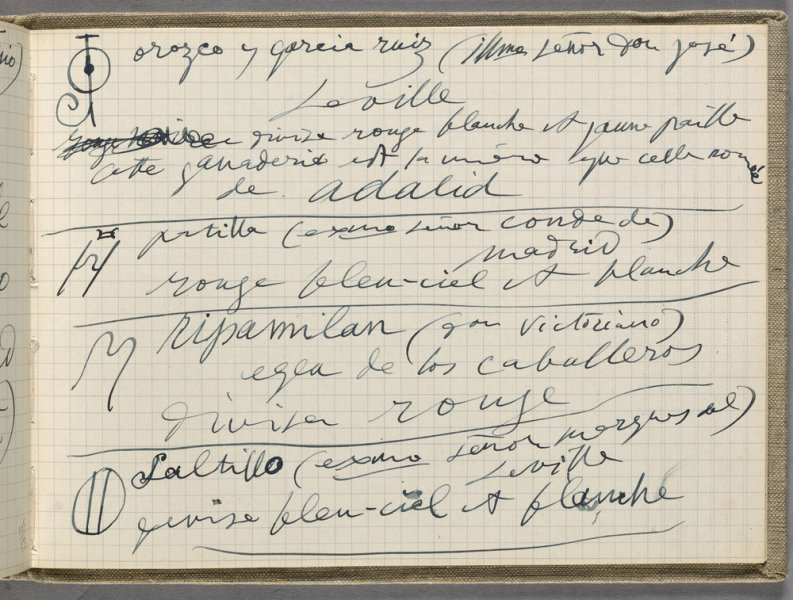 orozco y garcia ruiz (illmo señor don josé)
Seville
divise rouge blanche et jaune paille
cette ganaderia est la même que celle nommée
de adalid
patilla (exmo señor conde de)
madrid
rouge bleu-ciel et blanche
ripamilan (don Victoriano)
egea de los caballeros
divisa rouge
Saltillo (exmo señor marques del)
Seville
divise bleu-ciel et blanche